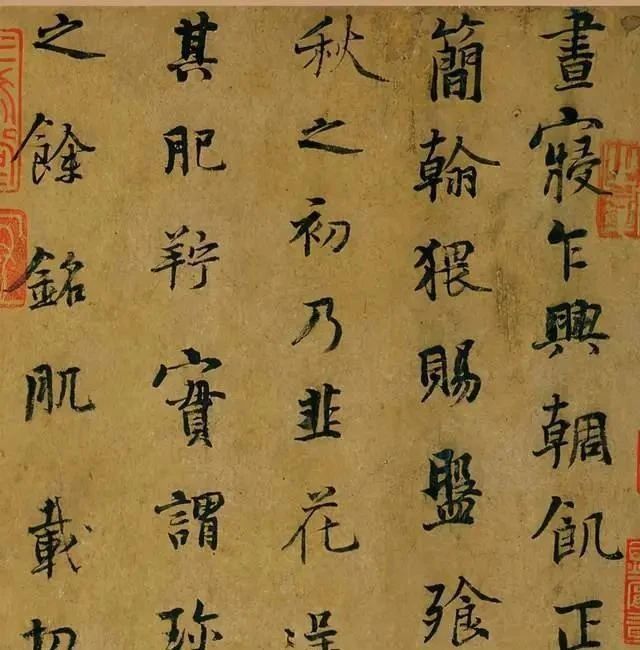 晝寢乍興輖飢正
簡翰猥賜盤飧
秋之初乃韭花逞
其肥羜實謂珍
之餘銘肌載切